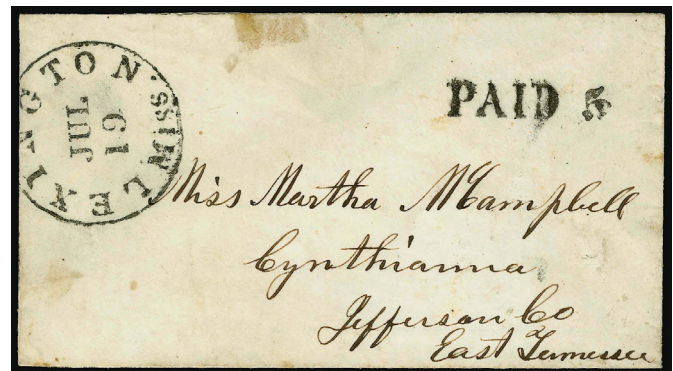 LEXINGTON MISS.
JUL
19
PAID 5
Miss Martha M Campbell
Cynthianna
Jefferson Co
East Tennessee